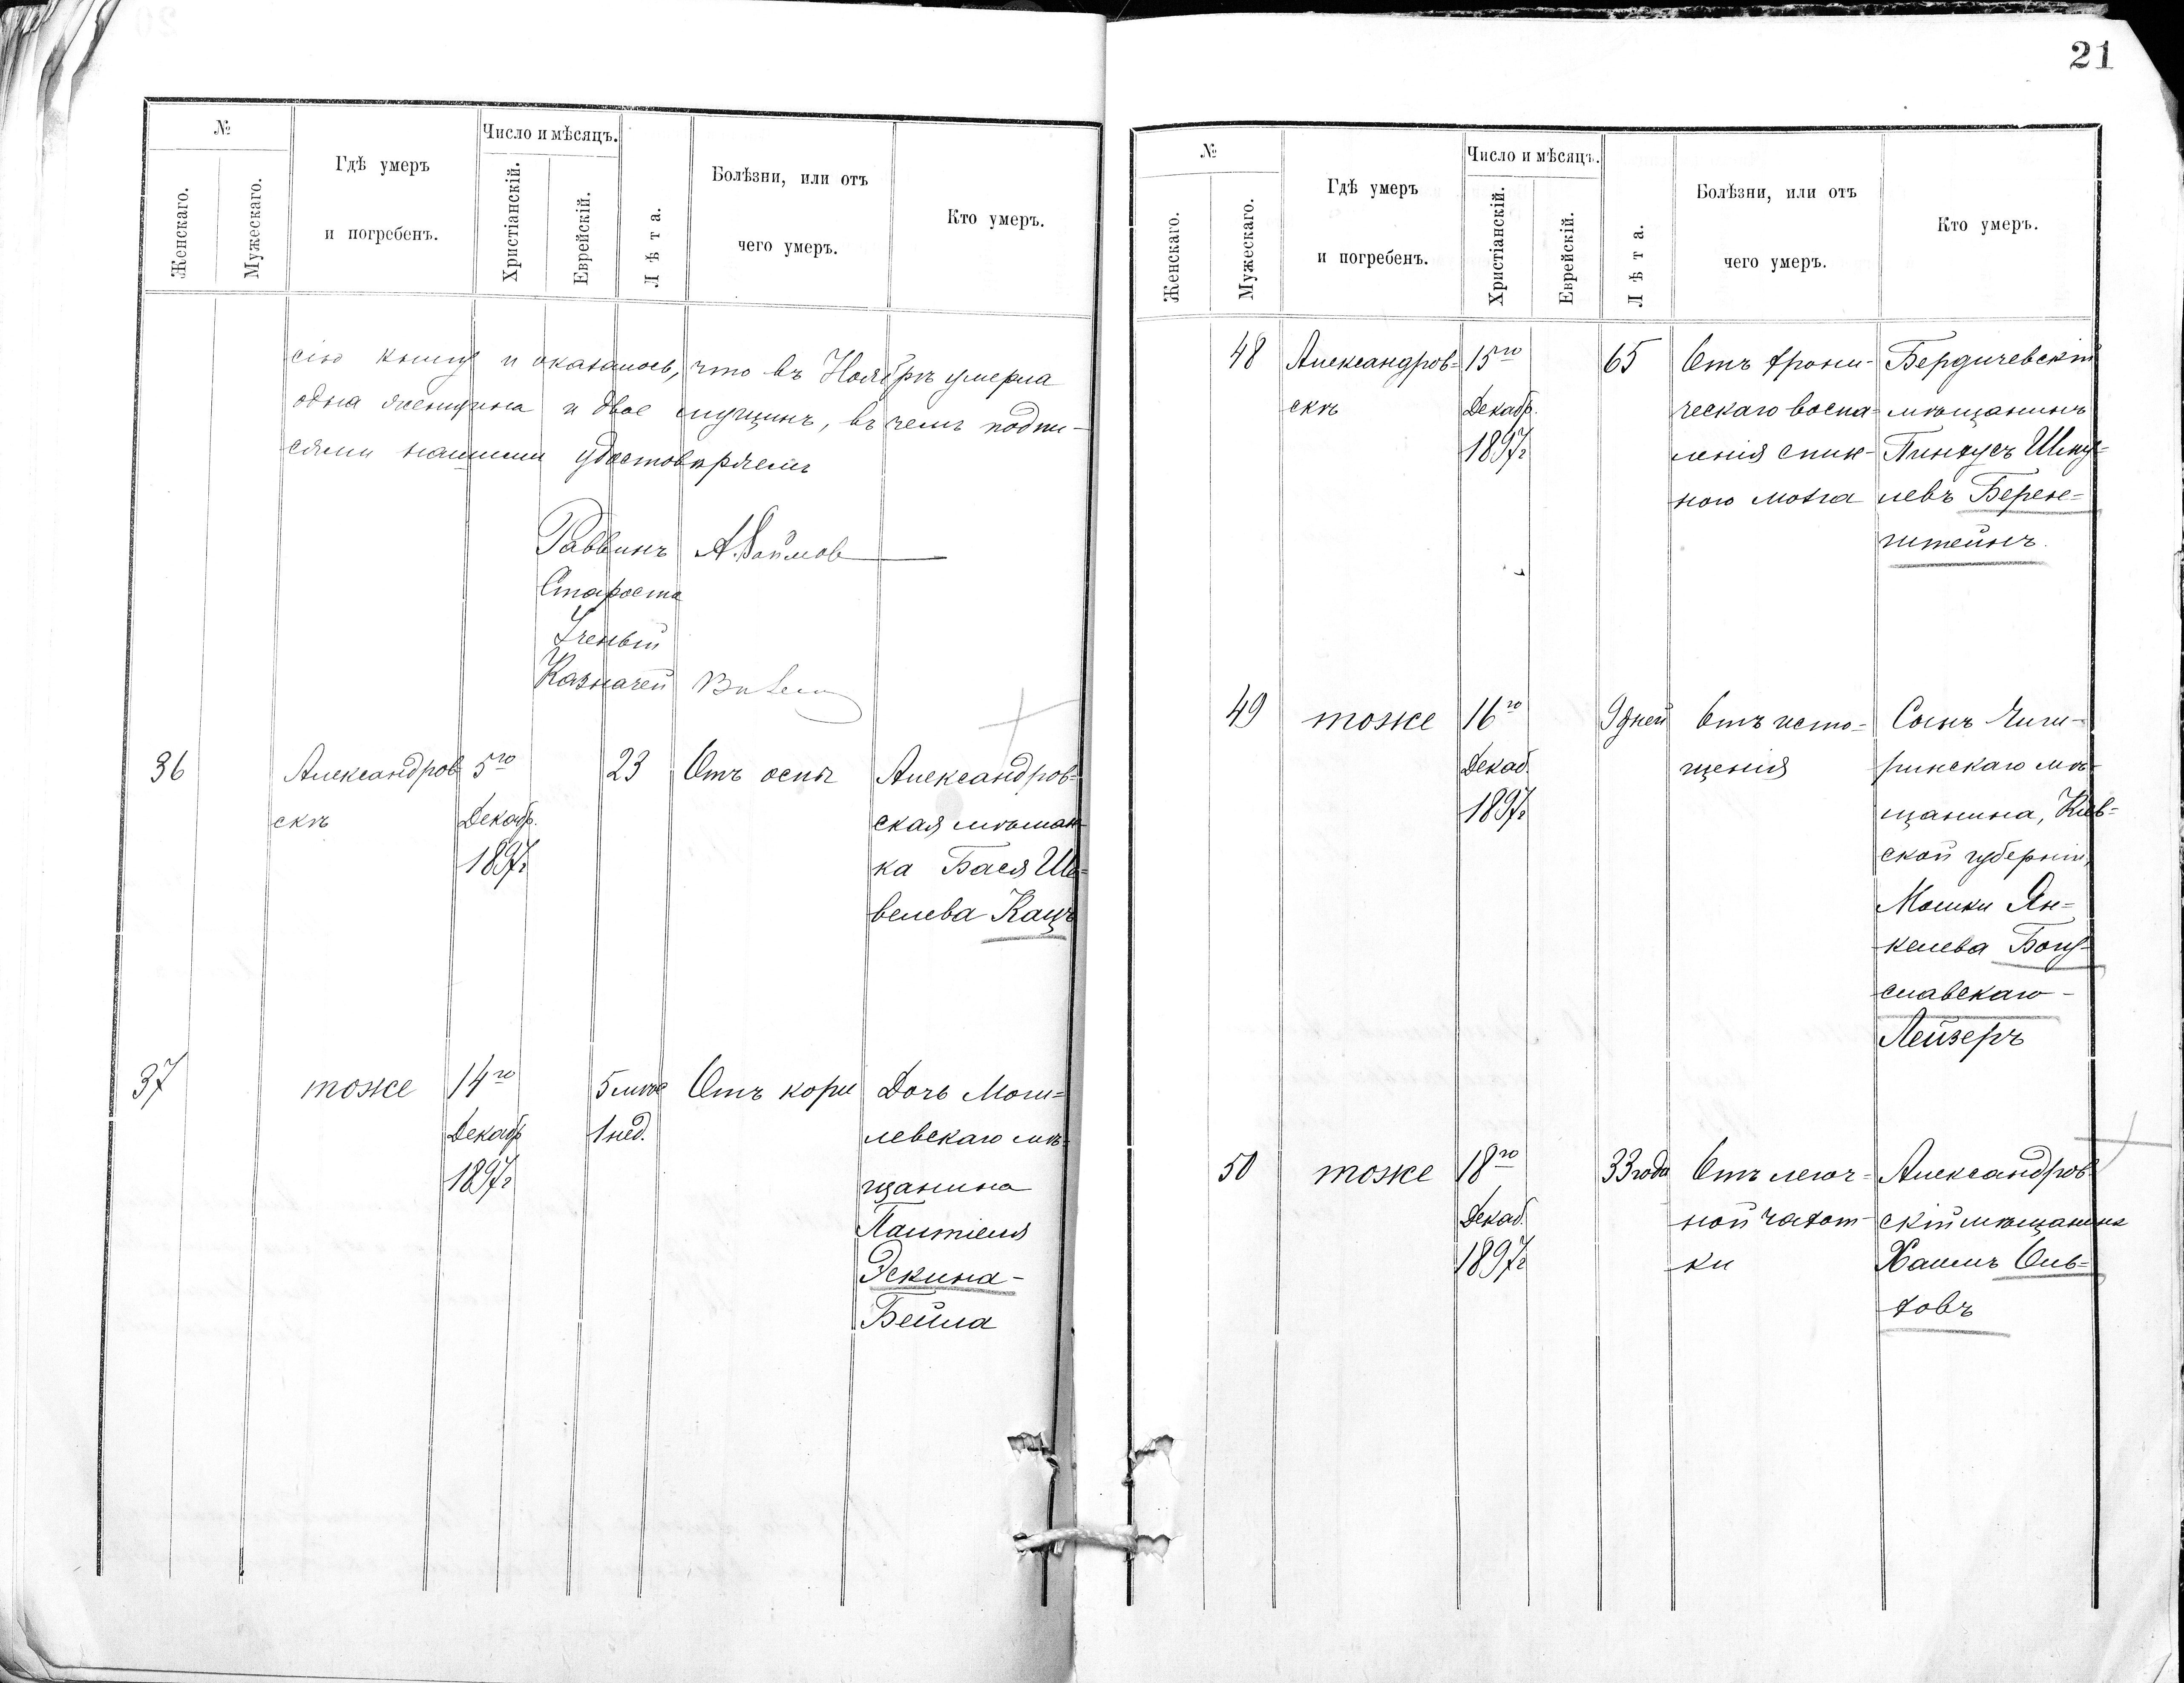 21
№
Женскаго.
Мужескаго.
Гдѣ умеръ
и погребенъ.
Число и мѣсяцъ.
Христіанскій.
Еврейскій.
Лѣта.
Болѣзни, или отъ
чего умеръ.
Кто умеръ.
сію книгу и оказалось, что въ Ноябрѣ умерла
одна женщина и двое мущинъ, въ чемъ подпи-
сями нашими удостовѣряемъ
Раввинъ
Староста
Ученый
Казначей
36
Александров
скѣ
5го
Декабр.
1897г
23
Отъ оспы
Александров-
ская мѣщан-
ка Бася Ше-
велева Кацъ
37
тоже
14го
Декабр
1897г
5 мѣс
1 нед.
Отъ кори
Дочь Моги-
левскаго мѣ-
щанина
Палтіеля
Эскина-
Бейла
№
Женскаго.
Мужескаго.
Гдѣ умеръ
и погребенъ.
Число и мѣсяцъ.
Христіанскій.
Еврейскій.
Лѣта.
Болѣзни, или отъ
чего умеръ.
Кто умеръ.
48
Александров-
скѣ
15го
Декабр.
1897г
65
Отъ хрони-
ческаго воспа-
ленія спин-
ного мозга
Бердичевскій
мѣщанинъ
Пинхусъ Шму-
левъ Берен-
штейнъ.
49
тоже
16го
Декаб.
1897г
9 дней
Отъ исто-
щенія
Сынъ Чиги-
ринскаго мѣ-
щанина, Кіев-
ской губерніи,
Мошки Ян-
келева Богу-
славскаго-
Лейзеръ
50
тоже
18го
Декаб.
1897г
33 года
Отъ легоч-
ной чахот-
ки
Александров-
скій мѣщанинъ
Хаимъ Оль-
ховъ